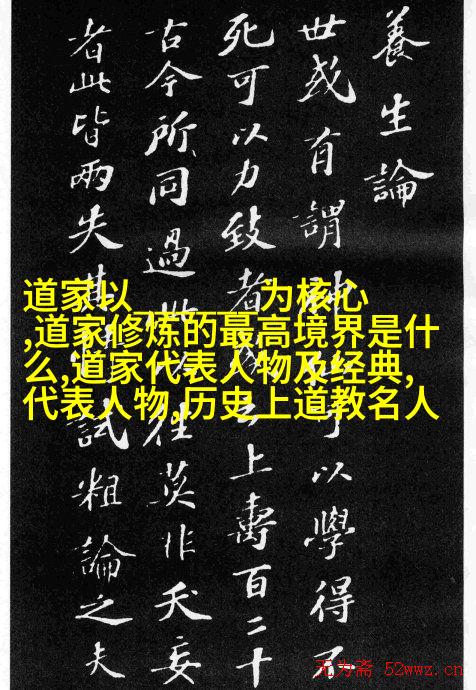 養生論
世或有謂神以學得不
死可以力致者云上壽百二十
古今所同過此往莫非夭妄
者此皆兩失其試粗論之夫
道家以______为核心
,道家修炼的最高境界是什
么,道家代表人物及经典,
代表人物,历史上道教名人
无为斋 52wwz.cn